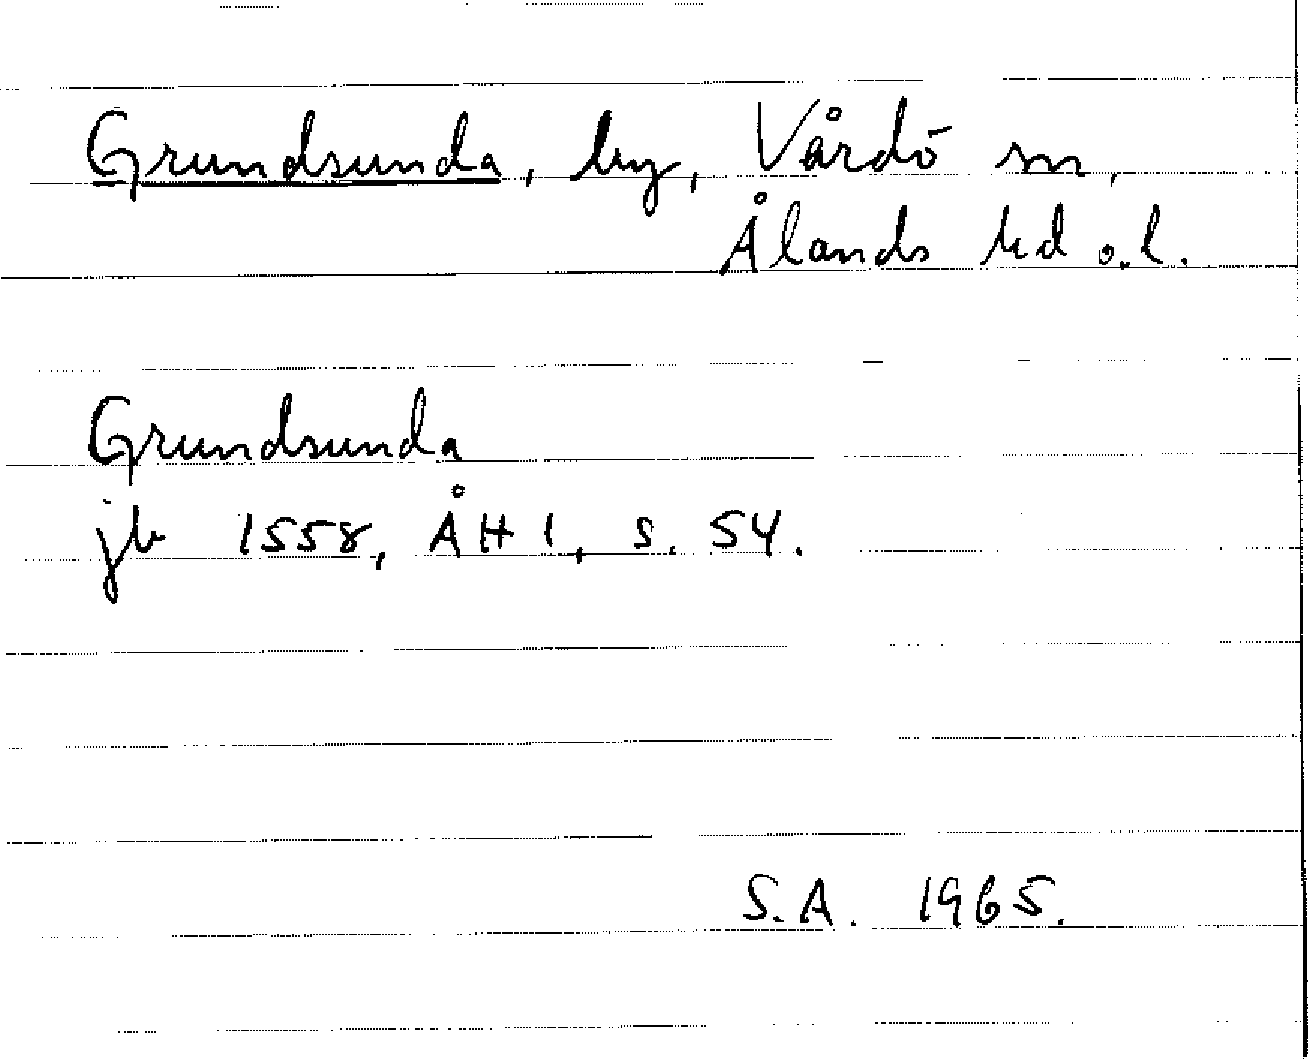 Grundsunda, by, Vårdö sn,
Ålands hd o. l.
Grundsunda
jb 1558, ÅH 1, s. 54.
S.A. 1965.